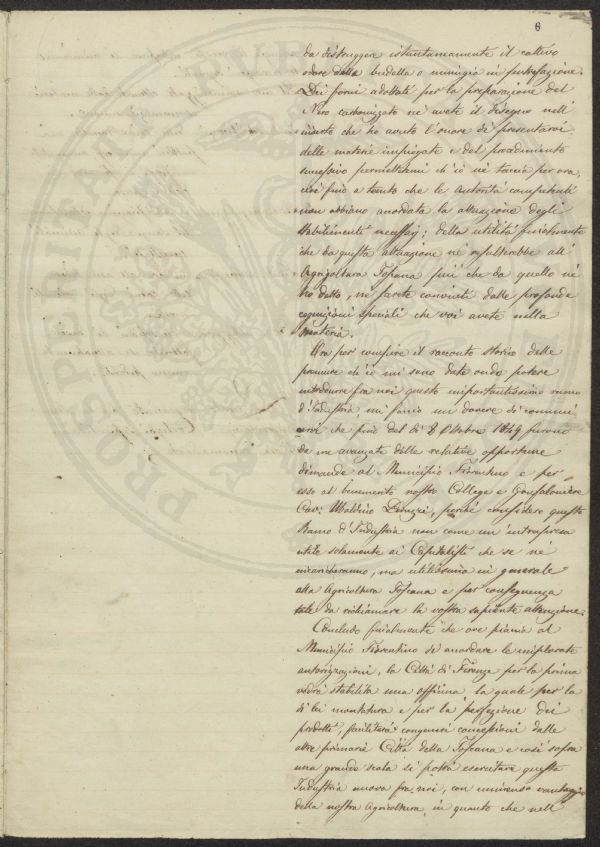 6
da distruggere istantaneamente il cattivo
odore delle budella o minugia in putrefazione.
Dei forni adottati per la preparazione del
Nero carbonizzato né avete il disegno nell'
inserto che ho avuto l'onore di presentarvi
delle materie impiegate e del procedimento
successivo permettetemi ch'io né taccia per ora,
cioè fino a tanto che le Autorità competenti
non abbiano accordata la attuazione degli
stabilimenti necessarj; della utilità finalmente
che da questa attuazione né risulterebbe all'
Agricoltura Toscana più che da quello né
ho detto, né sarete convinti dalle profonde
cognizioni speciali che voi avete nella
materia.
Ora per compire il racconto storico delle
premure ch'io mi sono date onde potere
introdurre fra noi questo importantissimo ramo
d'Industria, mi faccio un dovere di communi
carvi che fino del dì 8 Ottobre 1849 furono
da me avanzate delle relative opportune
dimande al Municipio Fiorentino e per
esso al benemerito vostro Collega e Gonfaloniere
Cav: Ubaldino Peruzzi, perché considero questo
Ramo d'Industria non come un'intrapresa
utile solamente ai Capitalisti che se ne
incaricheranno, ma utilissima in generale
alla Agricoltura Toscana e per conseguenza
tale da richiamare la vostra sapiente attenzione.
Concludo finalmente che ove piaccia al
Municipio Fiorentino di accordare le implorate
autorizzazioni, la Città di Firenze per la prima
vedrà stabilita una officina la quale per la
di lei montatura e per la perfezione dei
prodotti, faciliterà congeneri concessioni dalle
altre primarie Città della Toscana e così sopra
una grande scala si potrà esercitare questa
Industria nuova fra noi, con immenso vantaggio
della nostra Agricoltura, in quanto che nell'